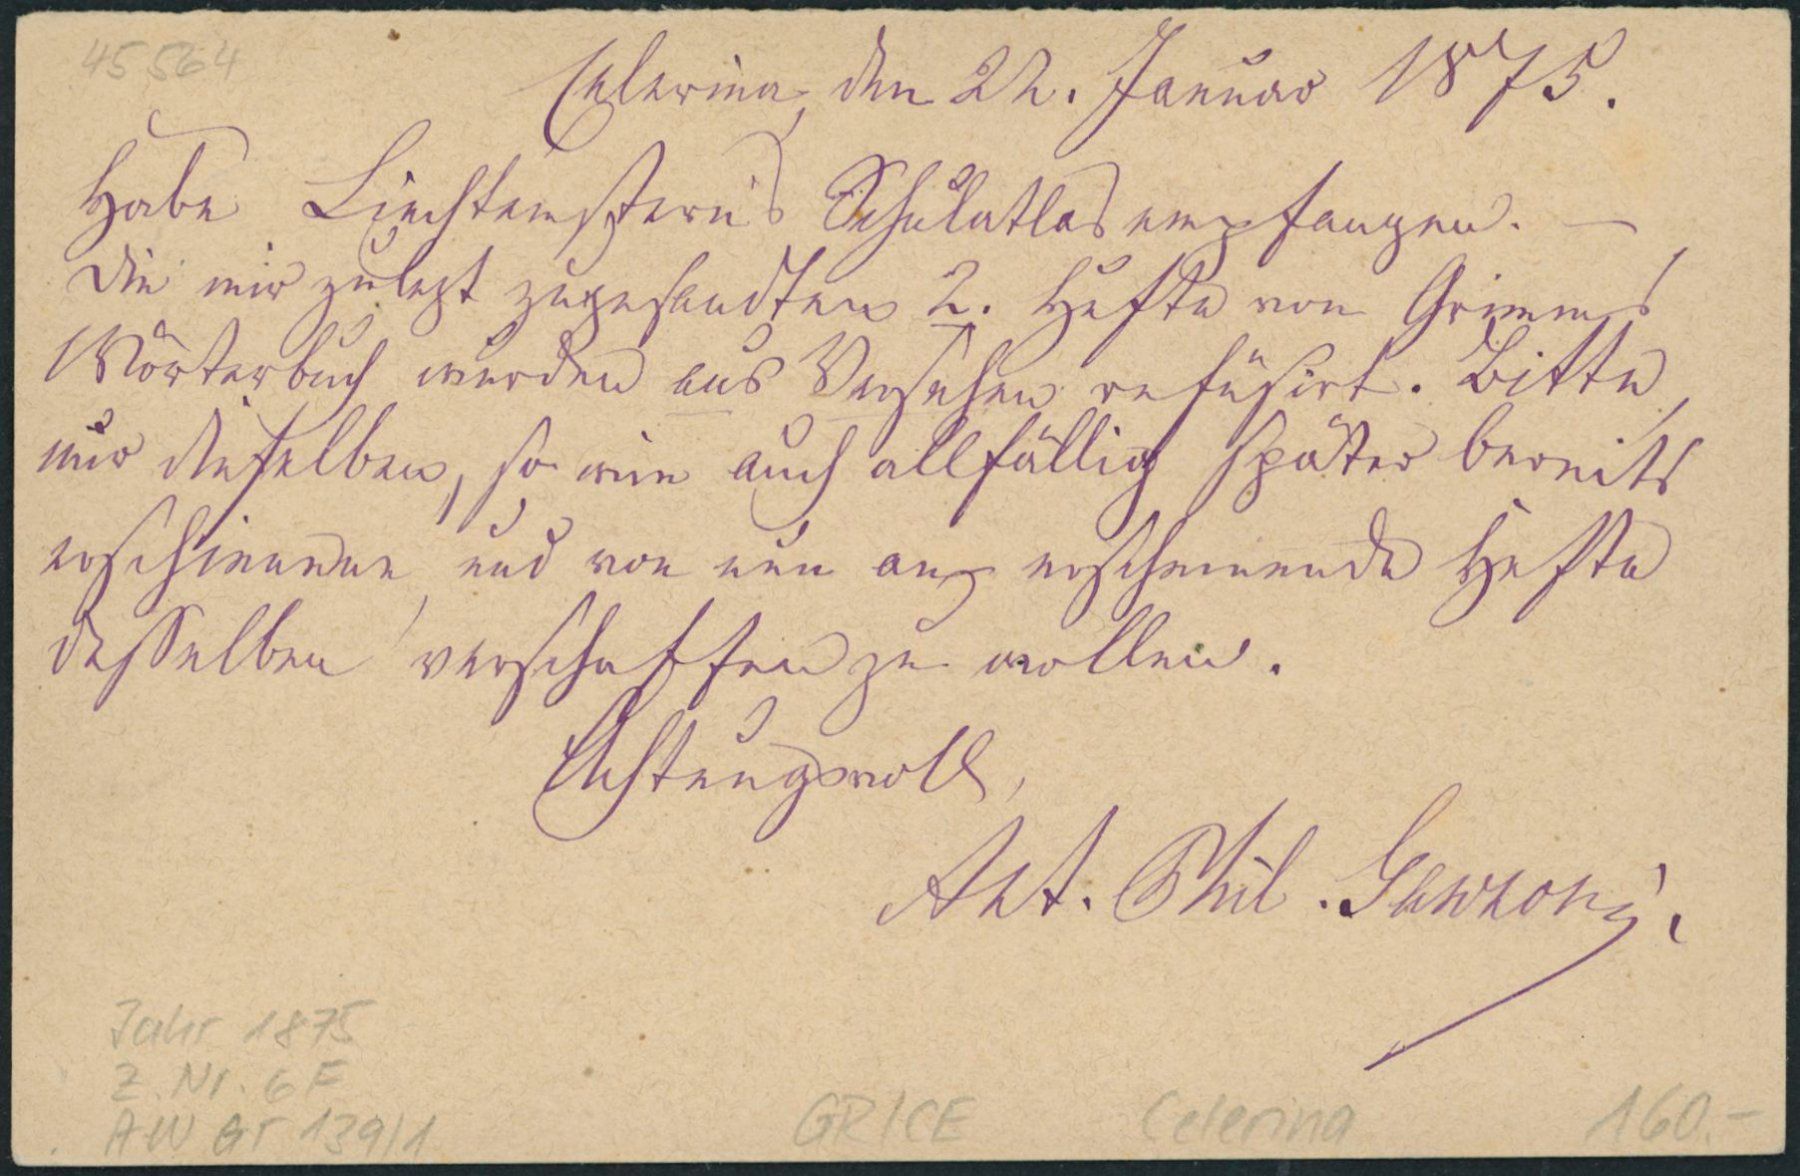 45564
Celerina, den 22. Januar 1875.
Habe Liechtenstern's Schulatlas empfangen. —
Die mir zulezt zugesandten 2. Hefte von Grimms
Wörterbuch wurden aus Versehen refüsirt. Bitte,
mir dieselben, so wie auch allfällig später bereits
erschienene und von nun an erscheinende Hefte
desselben verschaffen zu wollen.
Achtungsvoll,
Ant. Phil.
Jahr 1875
Z. Nr. 6 F
AW GR 139/1
GR/CE Celerina 160.-